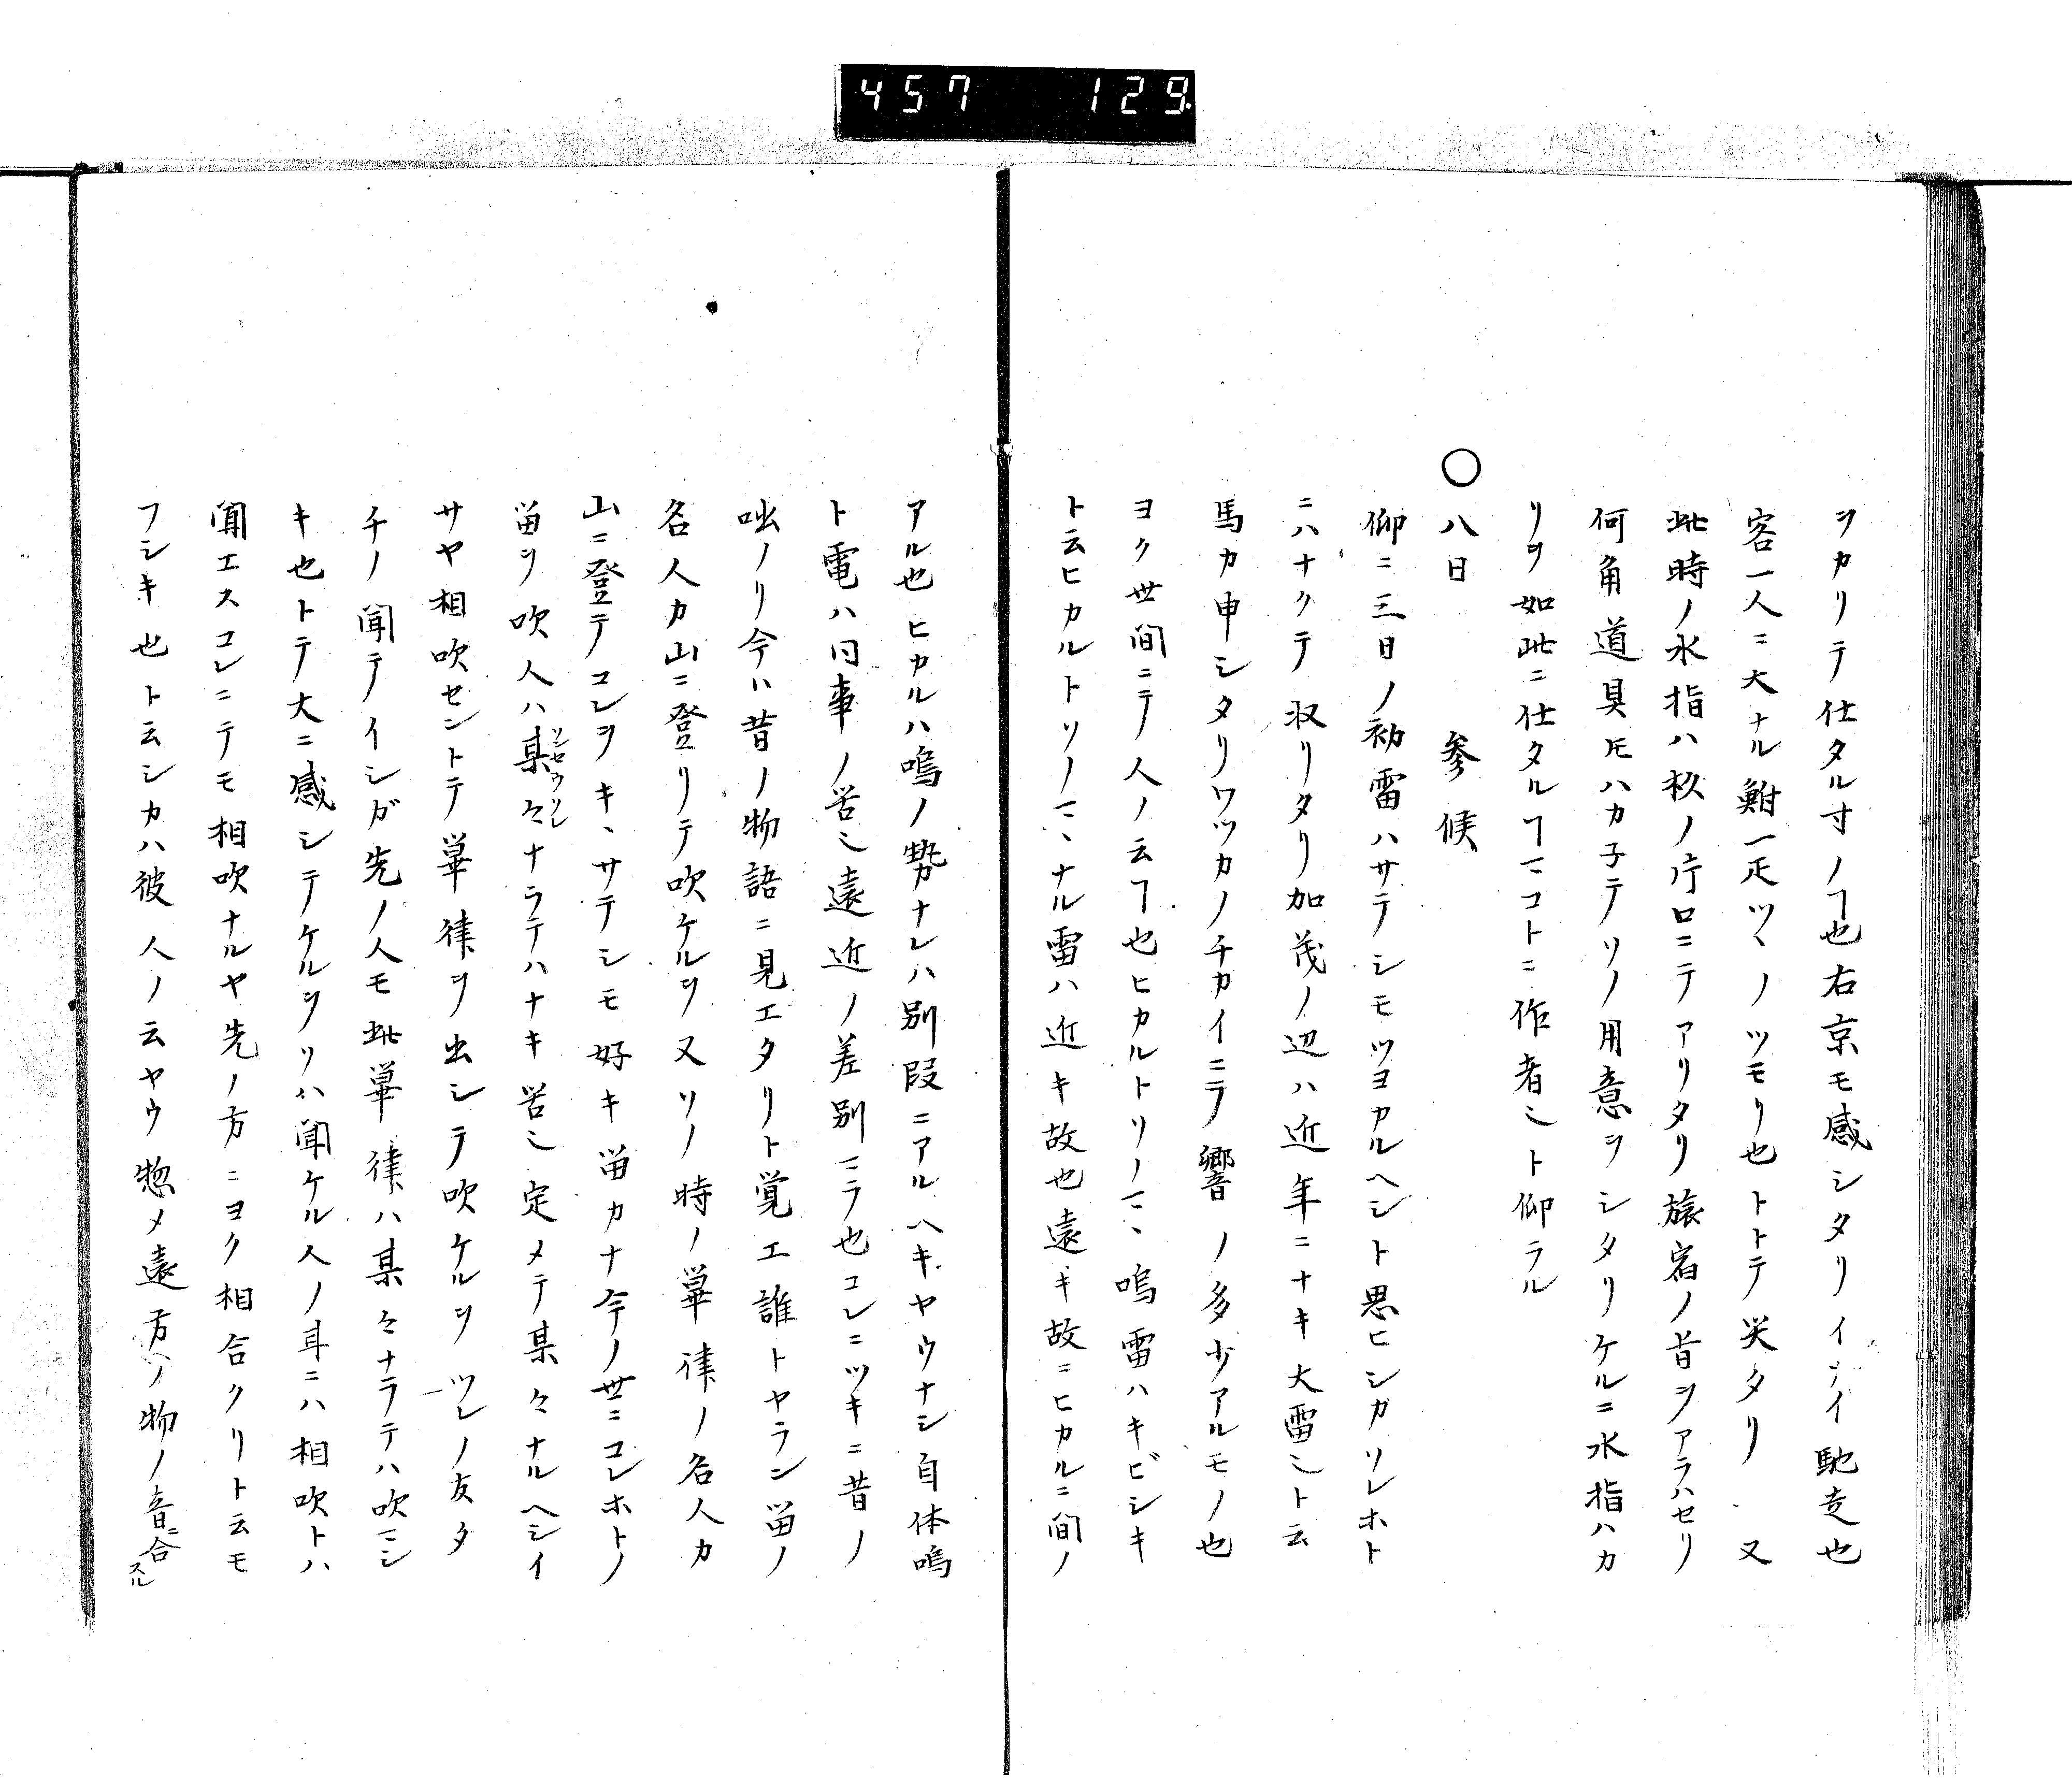 457 129
ヲカリテ仕タル寸ノヿ也右京モ感シタリイカイ馳走也
客一人ニ大ナル鮒一疋ツヽノツモリ也トトテ笑タリ 又
此時ノ水指ハ杉ノ片口ニテアリタリ旅宿ノ昔ヲアラハセリ
何角道具𪜈ハカ子テソノ用意ヲシタリケルニ水指ハカ
リヲ如此ニ仕タルヿマコトニ作者ミト仰ラル
〇八日 参候
仰ニ三日ノ初雷ハサテシモツヨカルヘシト思ヒシガソレホト
ニハナクテ収リタリ加茂ノ辺ハ近年ニナキ大雷ミト云
馬カ申シタリワツカノチカイニテ響ノ多少アルモノ也
ヨク世間ニテ人ノ云ヿ也ヒカルトソノマヽ鳴雷ハキビシキ
ト云ヒカルトソノマヽナル雷ハ近キ故也遠キ故ニヒカルニ間ノ
アル也ヒカルハ鳴ノ勢ナレハ別段ニアルヘキヤウナシ自体鳴
ト電ハ同事ノ筈ミ遠近ノ差別ニテ也コレニツキニ昔ノ
咄ノリ今ハ昔ノ物語ニ見エタリト覚エ誰トヤラン笛ノ
名人カ山ニ登リテ吹ケルヲ又ソノ時ノ篳篥ノ名人カ
山ニ登テコレヲキヽサテシモ好キ笛カナ今ノ世ニコレホトノ
笛ヲ吹人ハ某々ナラテハナキ筈ミ定メテ某々ナルヘシイ
サヤ相吹セントテ篳篥ヲ出シテ吹ケルヲツレノ友タ
チノ聞テイシガ先ノ人モ此篳篥ハ某々ナラテハ吹マシ
キ也トテ大ニ感シテケルヲソハ聞ケル人ノ耳ニハ相吹トハ
聞エスコレニテモ相吹ナルヤ先ノ方ニヨク相合クリト云モ
フシキ也ト云シカハ彼人ノ云ヤウ惣メ遠方ノ物ノ音ニ合スル